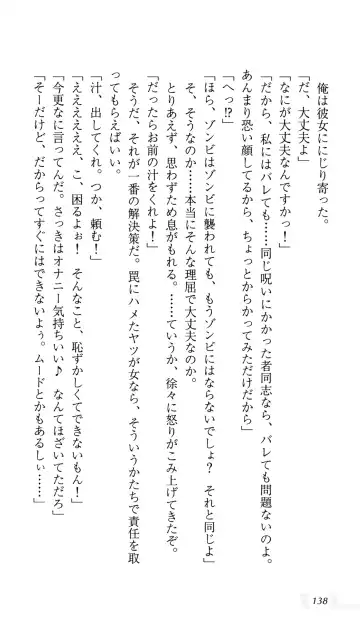 俺は彼女ににじり寄った。
「だ、大丈夫よ」
「なにが大丈夫なんですかっ！」
「だから、私にはバレても……同じ呪いにかかった者同志なら、バレても問題ないのよ。
あんまり恐い顔してるから、ちょっとからかってみただけだから」
「へっ!?」
「ほら、ゾンビはゾンビに襲われても、もうゾンビにはならないでしょ？　それと同じよ」
そ、そうなのか……本当にそんな理屈で大丈夫なのか。
とりあえず、思わずため息がもれる。……ていうか、徐々に怒りがこみ上げてきたぞ。
「だったらお前の汁をくれよ！」
そうだ、それが一番の解決策だ。罠にハメたヤツが女なら、そういうかたちで責任を取
ってもらえばいい。
「汁、出してくれ。つか、頼む！」
「えええええええ、こ、困るよぉ！　そんなこと、恥ずかしくてできないもん！」
「今更なに言ってんだ。さっきはオナニー気持ちいい♪　なんてほざいてただろ」
「そーだけど、だからってすぐにはできないよぅ。ムードとかもあるしぃ……」
138